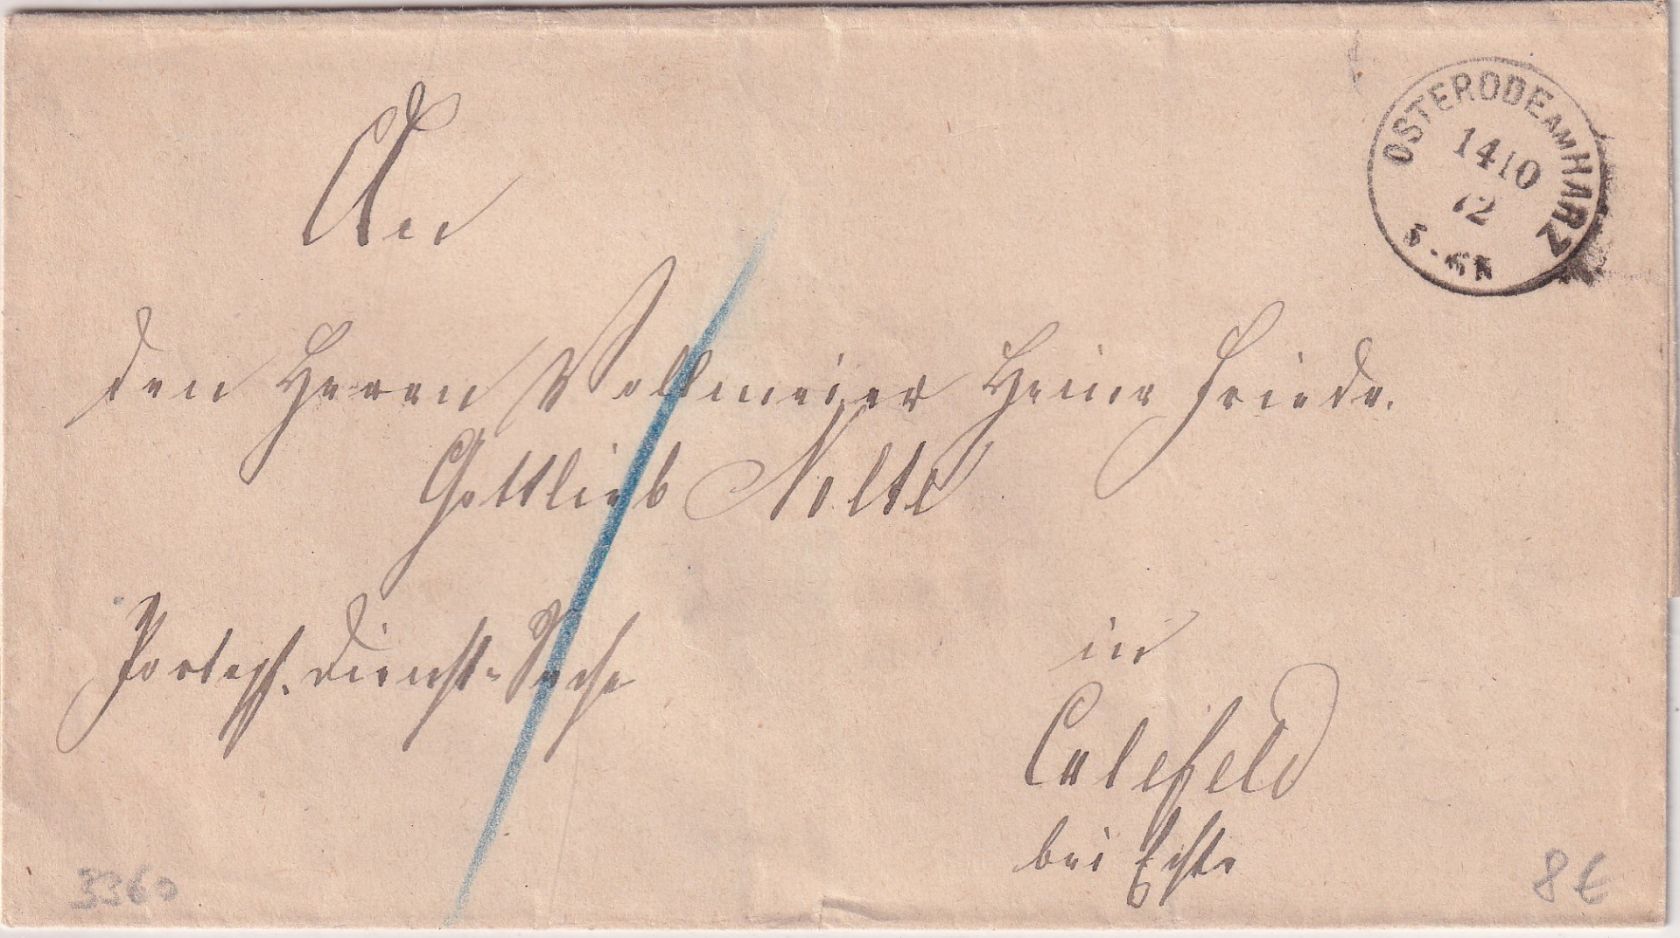 OSTERODE AM HARZ
14 10
72
5-6 N
An
den Herrn Vollmeier Heinr Friedr.
Gottlieb Nolte
Portopfl. Dienst-Sache
in
Calefeld
bei Echte
3360
8 €